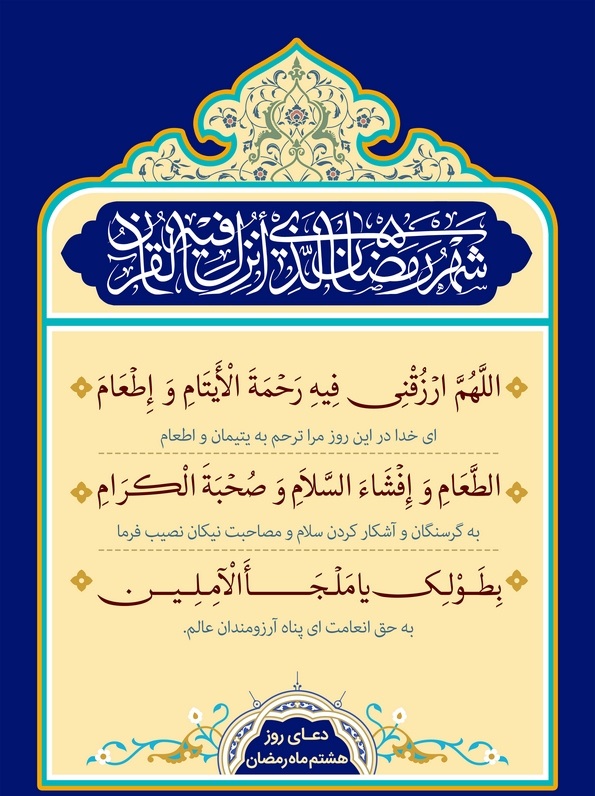 شهر رمضان الذي أنزل فيه القرآن
اللَّهُمَّ ارْزُقْنِي فِيهِ رَحْمَةَ الْأَيْتَامِ وَ إِطْعَامَ
ای خدا در این روز مرا ترحم به یتیمان و اطعام
الطَّعَامِ وَ إِفْشَاءَ السَّلاَمِ وَ صُحْبَةَ الْكِرَامِ
به گرسنگان و آشکار کردن سلام و مصاحبت نیکان نصیب فرما
بِطَوْلِکَ یا مَلْجَأَ الْآمِلِینَ
به حق انعامت ای پناه آرزومندان عالم.
دعـای روز
هشتم ماه رمضان